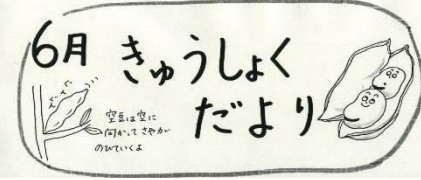 6月 きゅうしょく
だより
ぐんぐん
空豆は空に
向かってさやが
のびていくよ